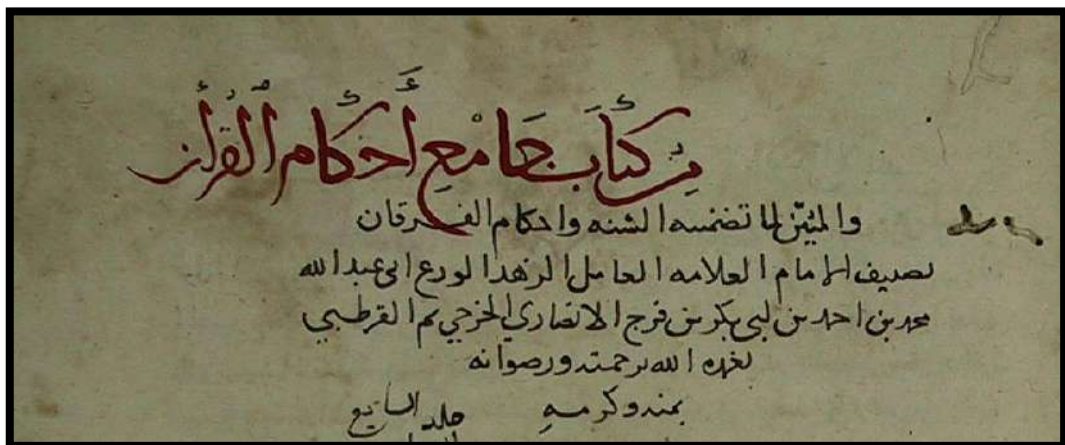 من كتاب جامع أحكام القرآن
والمبين لما تضمنه السنه واحكام الفرقان
تصنيف الامام العلامه العامل الزهد الورع ابى عبد الله
محمد بن احمد بن ابي بكر بن فرج الانصاري الخزرجي ثم القرطبي
تغمده الله برحمته ورضوانه
بمنه وكرمه
جلد السابع